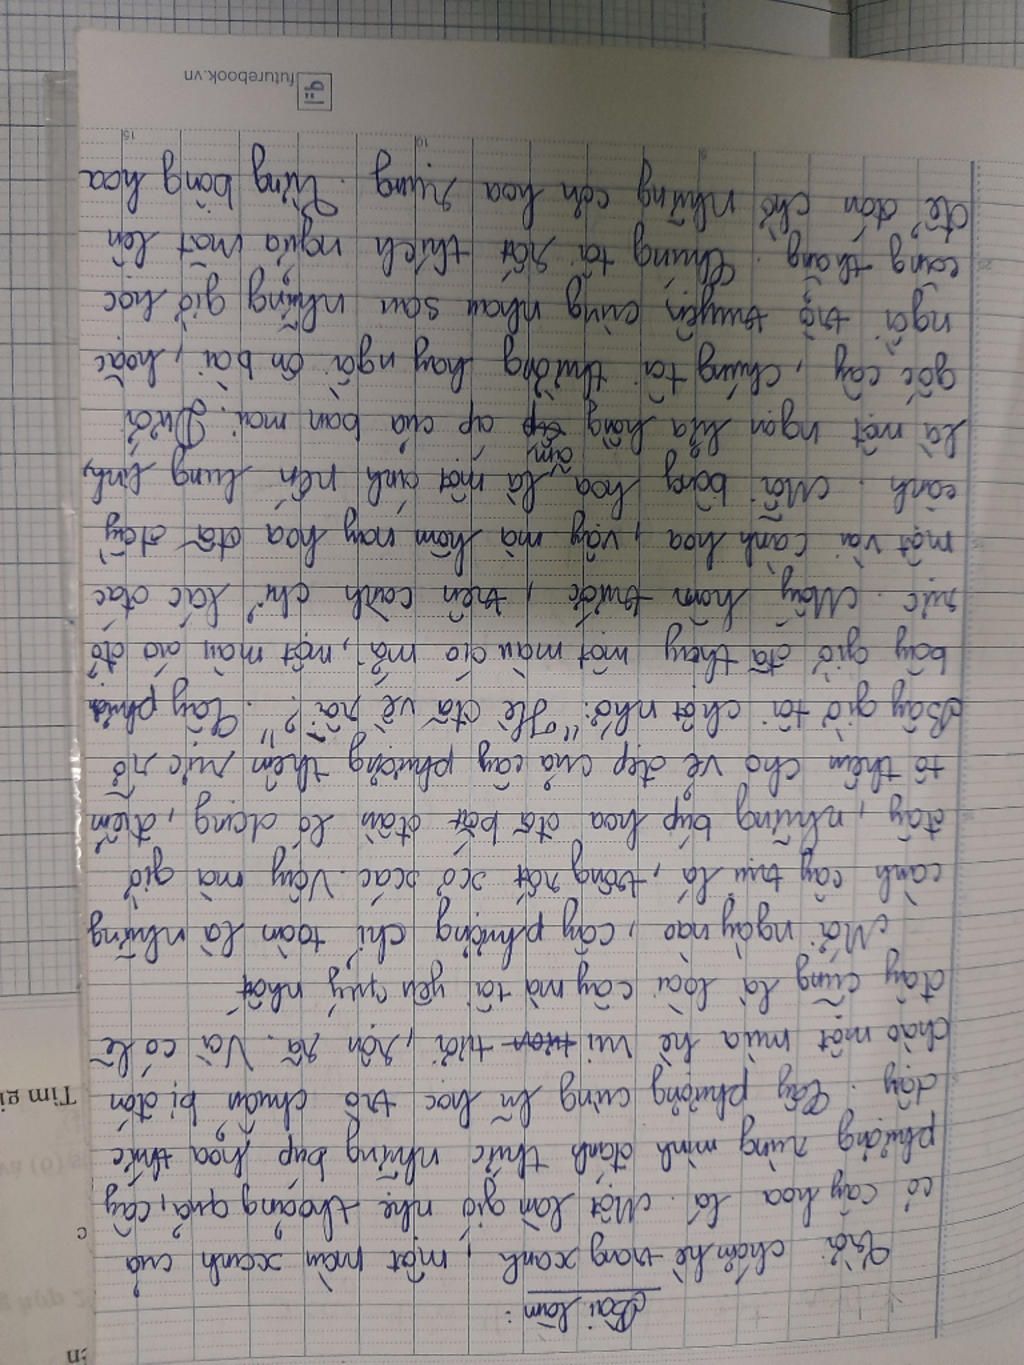 Bài làm :
Trời chớm hè trong xanh, một màu xanh của
cỏ cây hoa lá. Một làn gió nhẹ thoảng qua, cây
phượng rùng mình đánh thức những búp hoa thức
dậy. Cây phượng cùng lũ học trò chuẩn bị đón
chào một mùa hè vui tươi, rộn rã. Và có lẽ
đây cũng là loài cây mà tôi yêu quý nhất
Mới ngày nào, cây phượng chỉ toàn là những
cành cây trụi lá, trông rất xơ xác. Vậy mà giờ
đây, những búp hoa đã bắt đầu ló dạng, điểm
tô thêm cho vẻ đẹp của cây phượng thêm rực rỡ
Bây giờ tôi chợt nhớ: "Hè đã về rồi?". Cây phượng
bây giờ đã thay một màu áo mới, một màu áo đỏ
rực. Mấy hôm trước, trên cành chỉ lác đác
một vài cánh hoa, vậy mà hôm nay hoa đã đầy
cành. Mỗi bông hoa là một ánh nến lung linh,
là một ngọn lửa hồng ấm áp của ban mai. Dưới
gốc cây, chúng tôi thường hay ngồi ôn bài, hoặc
ngồi trò truyện cùng nhau sau những giờ học
căng thẳng. Chúng tôi rất thích ngửa mặt lên
để đón chờ những cơn hoa rụng. Từng bông hoa
5
10
15
futurebook.vn
Tìm gi
c